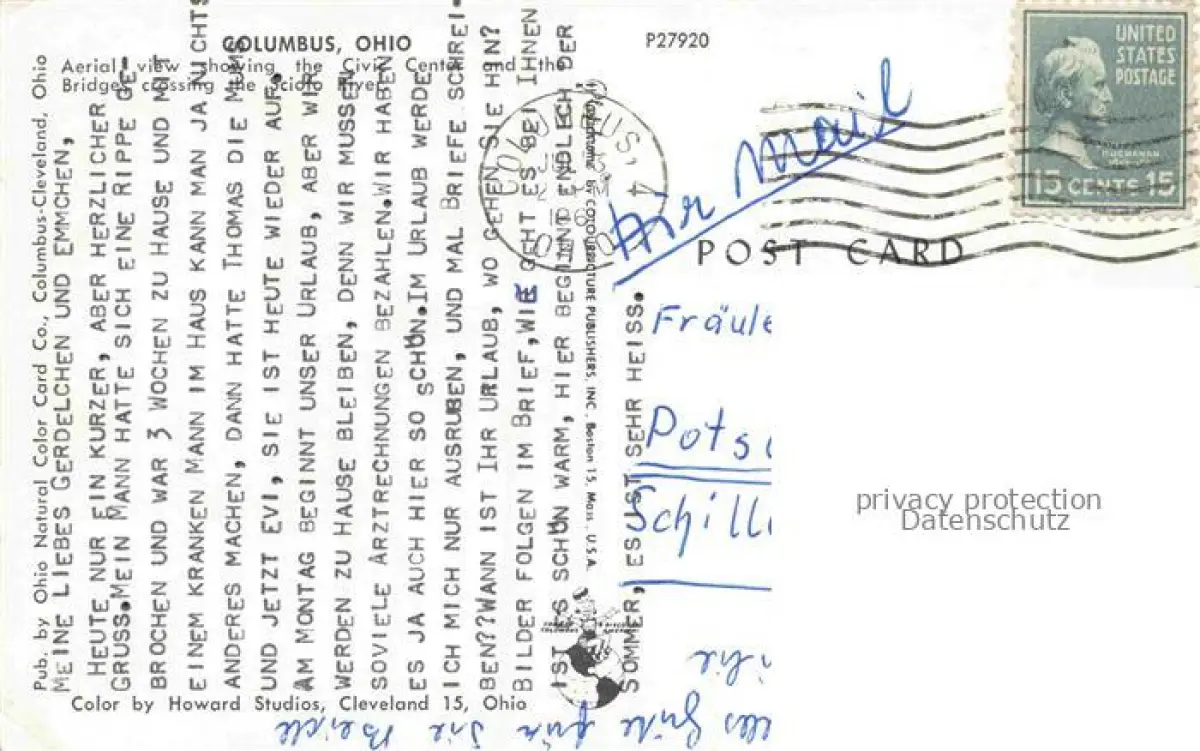 COLUMBUS, OHIO
Aerial view showing the Civic Center and the
Bridges crossing the Scioto River.
P27920
UNITED
STATES
POSTAGE
BUCHANAN
15 CENTS 15
COLUMBUS, 4
OHIO
Air Mail
POST CARD
Pub. by Ohio Natural Color Card Co., Columbus-Cleveland, Ohio
MEINE LIEBES GERDELCHEN UND EMMCHEN,
HEUTE NUR EIN KURZER, ABER HERZLICHER
GRUSS.MEIN MANN HATTE SICH EINE RIPPE GE-
BROCHEN UND WAR 3 WOCHEN ZU HAUSE UND MIT
EINEM KRANKEN MANN IM HAUS KANN MAN JA NICHTS
ANDERES MACHEN, DANN HATTE THOMAS DIE MUMS
UND JETZT EVI, SIE IST HEUTE WIEDER AUF.
AM MONTAG BEGINNT UNSER URLAUB, ABER WIR
WERDEN ZU HAUSE BLEIBEN, DENN WIR MUSSEN
SOVIELE ARZTRECHNUNGEN BEZAHLEN.WIR HABEN
ES JA AUCH HIER SO SCHÖN.IM URLAUB WERDE
ICH MICH NUR AUSRUHEN, UND MAL BRIEFE SCHREI-
BEN??WANN IST IHR URLAUB, WO GEHEN SIE HIN?
BILDER FOLGEN IM BRIEF,WIE GEHT ES BEI IHNEN
IST ES SCHÖN WARM, HIER BEGINND ENDLICH DER
SOMMER, ES IST SEHR HEISS.
Plastichrome by COLOURPICTURE PUBLISHERS, INC. Boston 15, Mass., U.S.A.
Fräule
Pots
Schill
privacy protection
Datenschutz
Color by Howard Studios, Cleveland 15, Ohio
lles Gute für Sie Beide